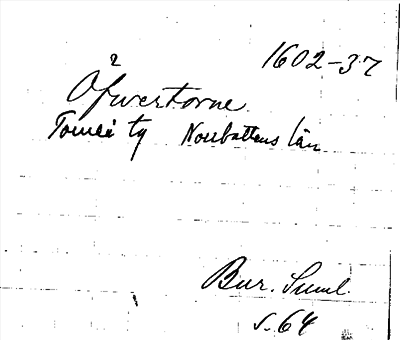 1602-37
2
Öfvertorne
Torneå ty Norrbottens län
Bur. Saml.
s. 64